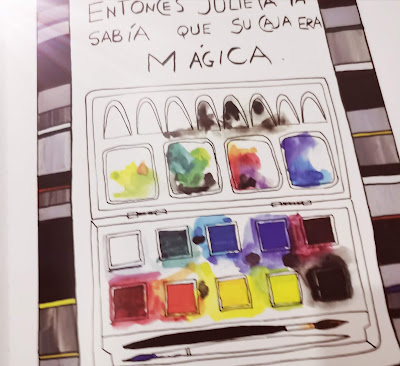 ENTONCES JULIETA YA
SABÍA QUE SU CAJA ERA
MÁGICA.